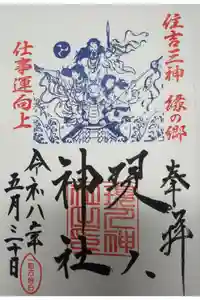 住吉三神 縁の郷
仕事運向上
奉拝
現人
神社
令和八年
五月二十日